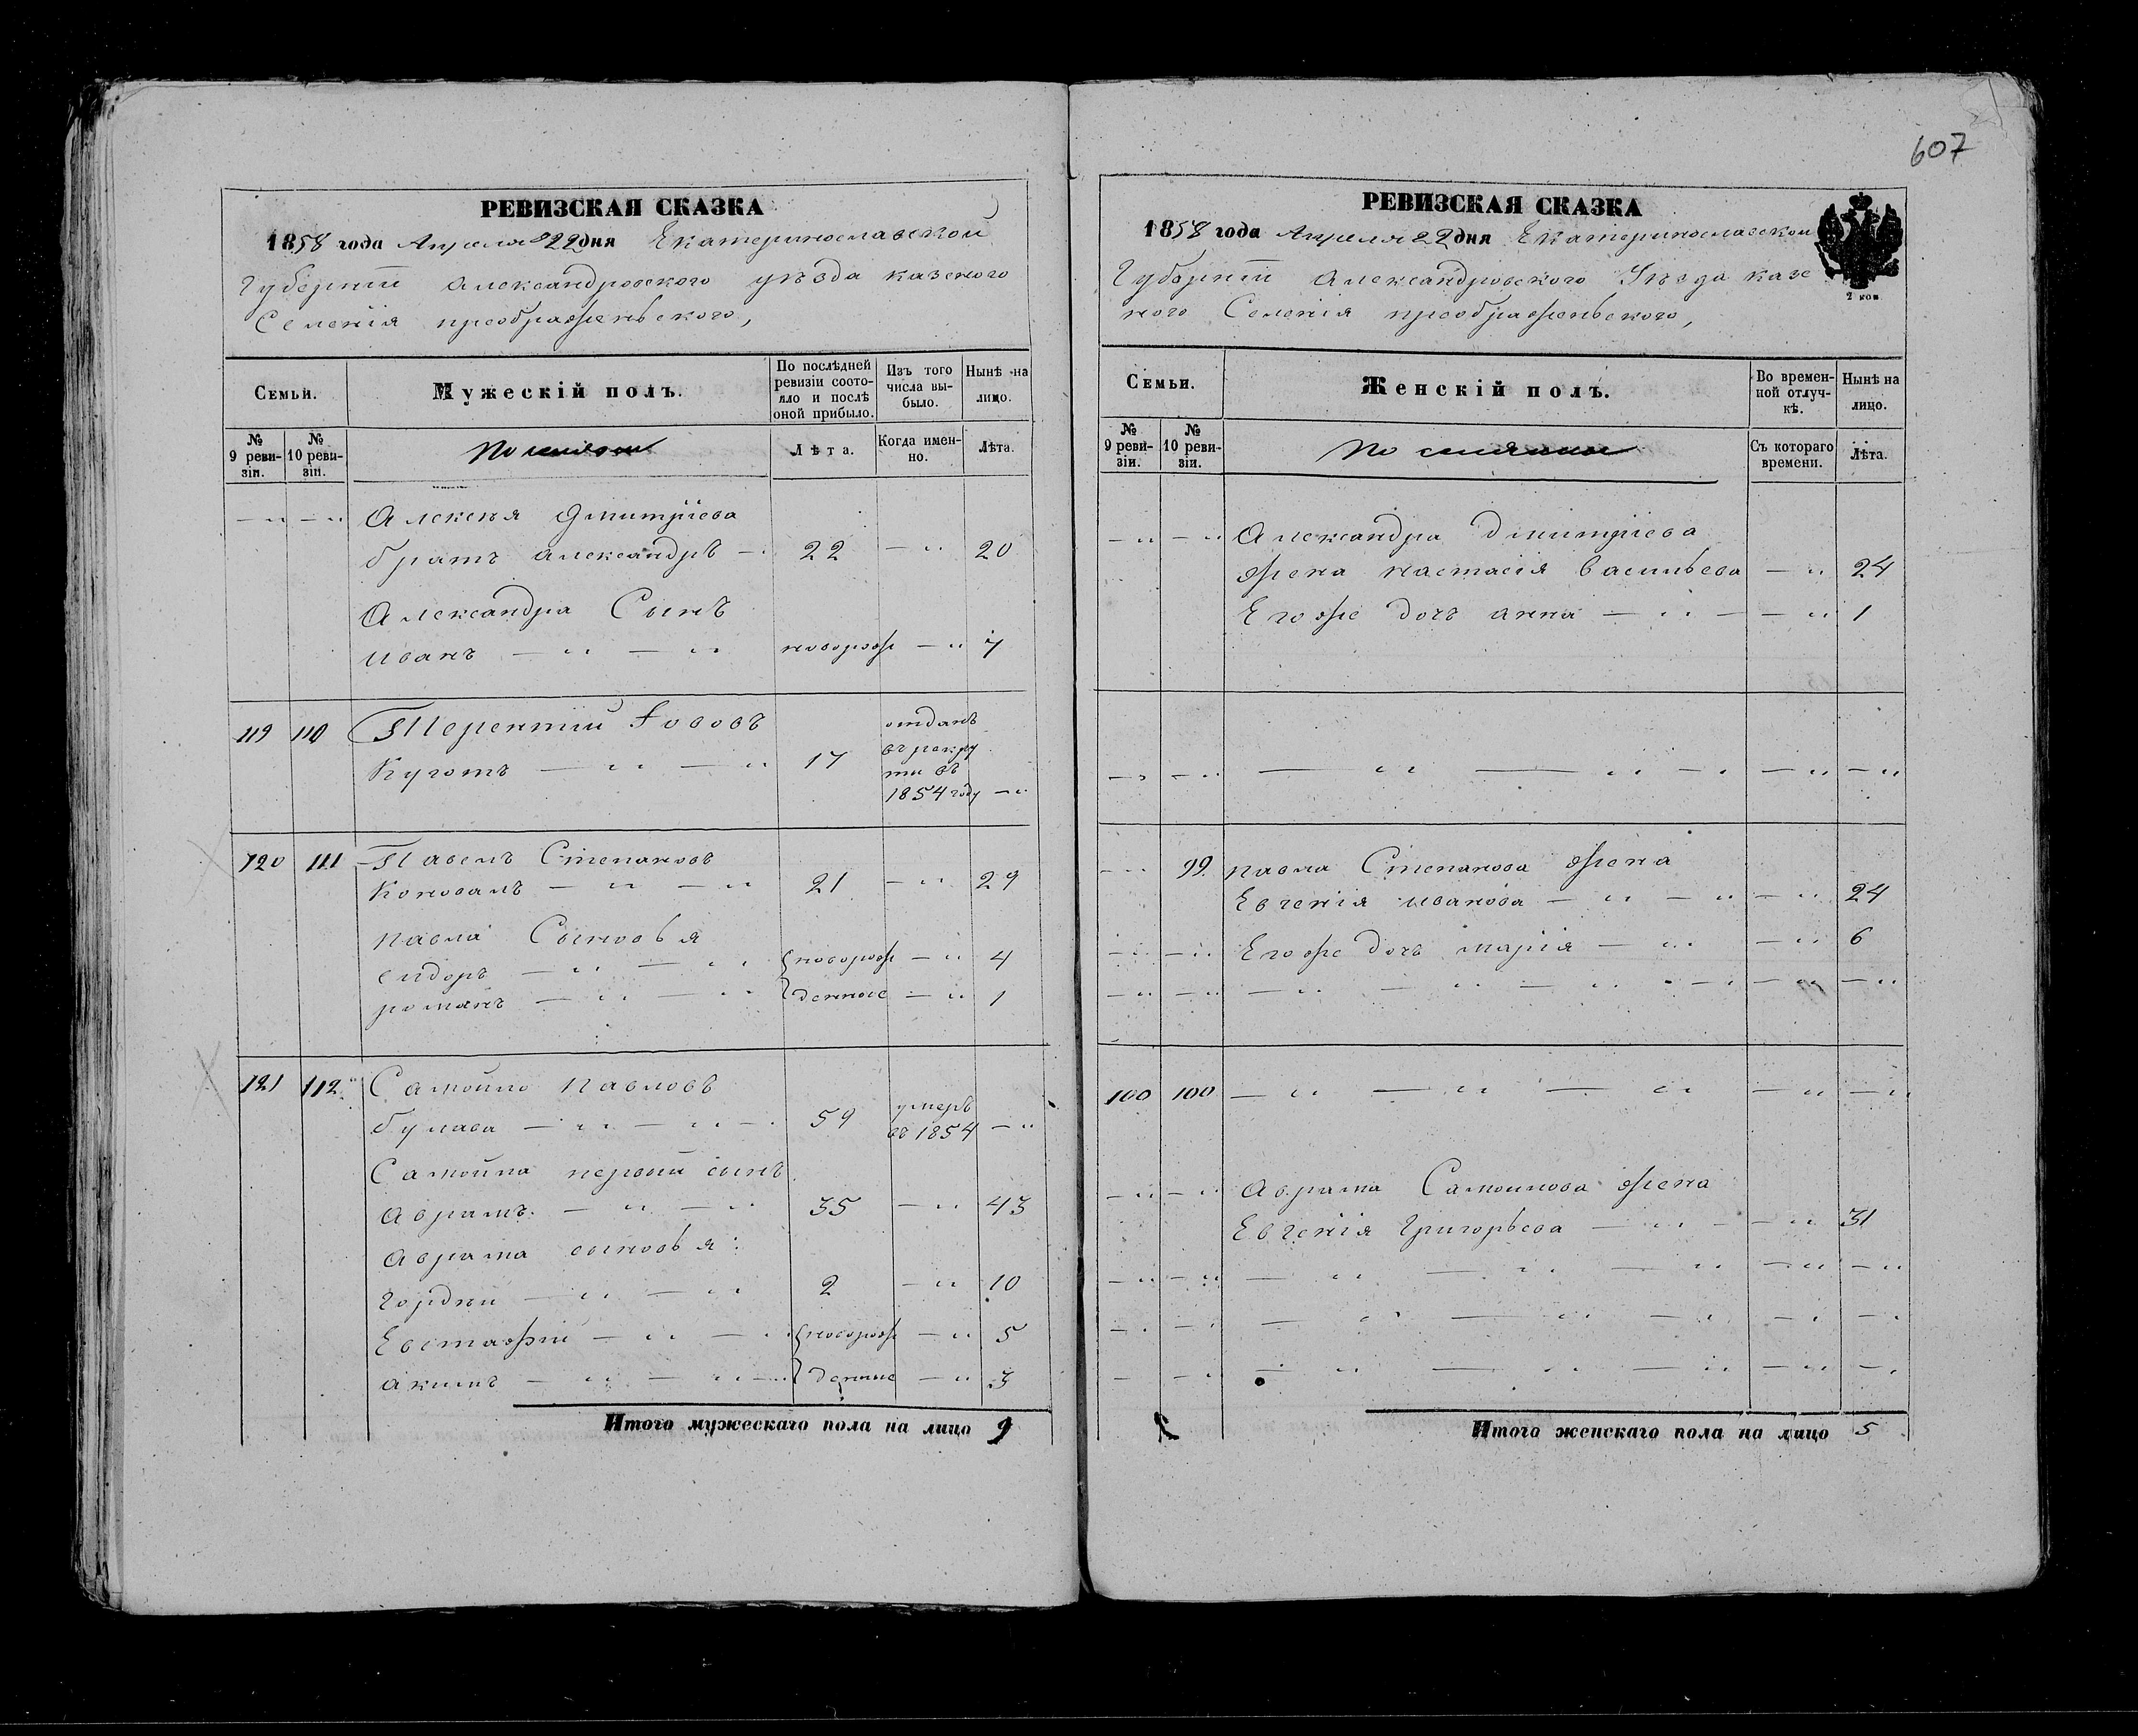 607
РЕВИЗСКАЯ СКАЗКА
1858 года Апреля 22 дня Екатеринославской
Губернiи Александровского уѣзда казеного
Селенiя преображеньского,
Семьи.
Мужескiй полъ.
По послѣдней ревизiи состояло и послѣ оной прибыло.
Изъ того числа выбыло.
Нынѣ на лицо.
№ 9 ревизiи.
№ 10 ревизiи.
Лѣта.
Когда именно.
Лѣта.
Алексея Дмитрiева
братъ александръ 22 20
Александра Сынъ
иванъ новорож 7
119 110 Терентiй Iововъ
17 отданъ
въ рекру
ти въ
1854 году
120 111 Павелъ Степановъ
Коновалъ 21 29
павла Сыновья
сидоръ новорож 4
романъ денные 1
121 112 Самойло павловъ
булава 59 умеръ
въ 1854
Самойла первый сынъ
аврамъ 35 43
аврама сыновья:
гордѣй 2 10
Евстафiй новорож 5
акимъ денные 3
Итого мужескаго пола на лицо 9
РЕВИЗСКАЯ СКАЗКА
1858 года Апреля 22 дня Екатеринославской
Губернiи Александровского Уѣзда казе
ного Селенiя преображеньского,
2 коп
Семьи.
Женскiй полъ.
Во временной отлучкѣ.
Нынѣ на лицо.
№ 9 ревизiи.
№ 10 ревизiи.
Съ котораго времени.
Лѣта.
Александра Дмитрiева
жена настасiя васильева 24
Егоже дочь анна 1
99 павла Степанова жена
Евгенiя иванова 24
Егоже дочь марiя 6
100 100
Аврама Самойлова жена
Евгенiя Григорьева 31
Итого женскаго пола на лицо 5